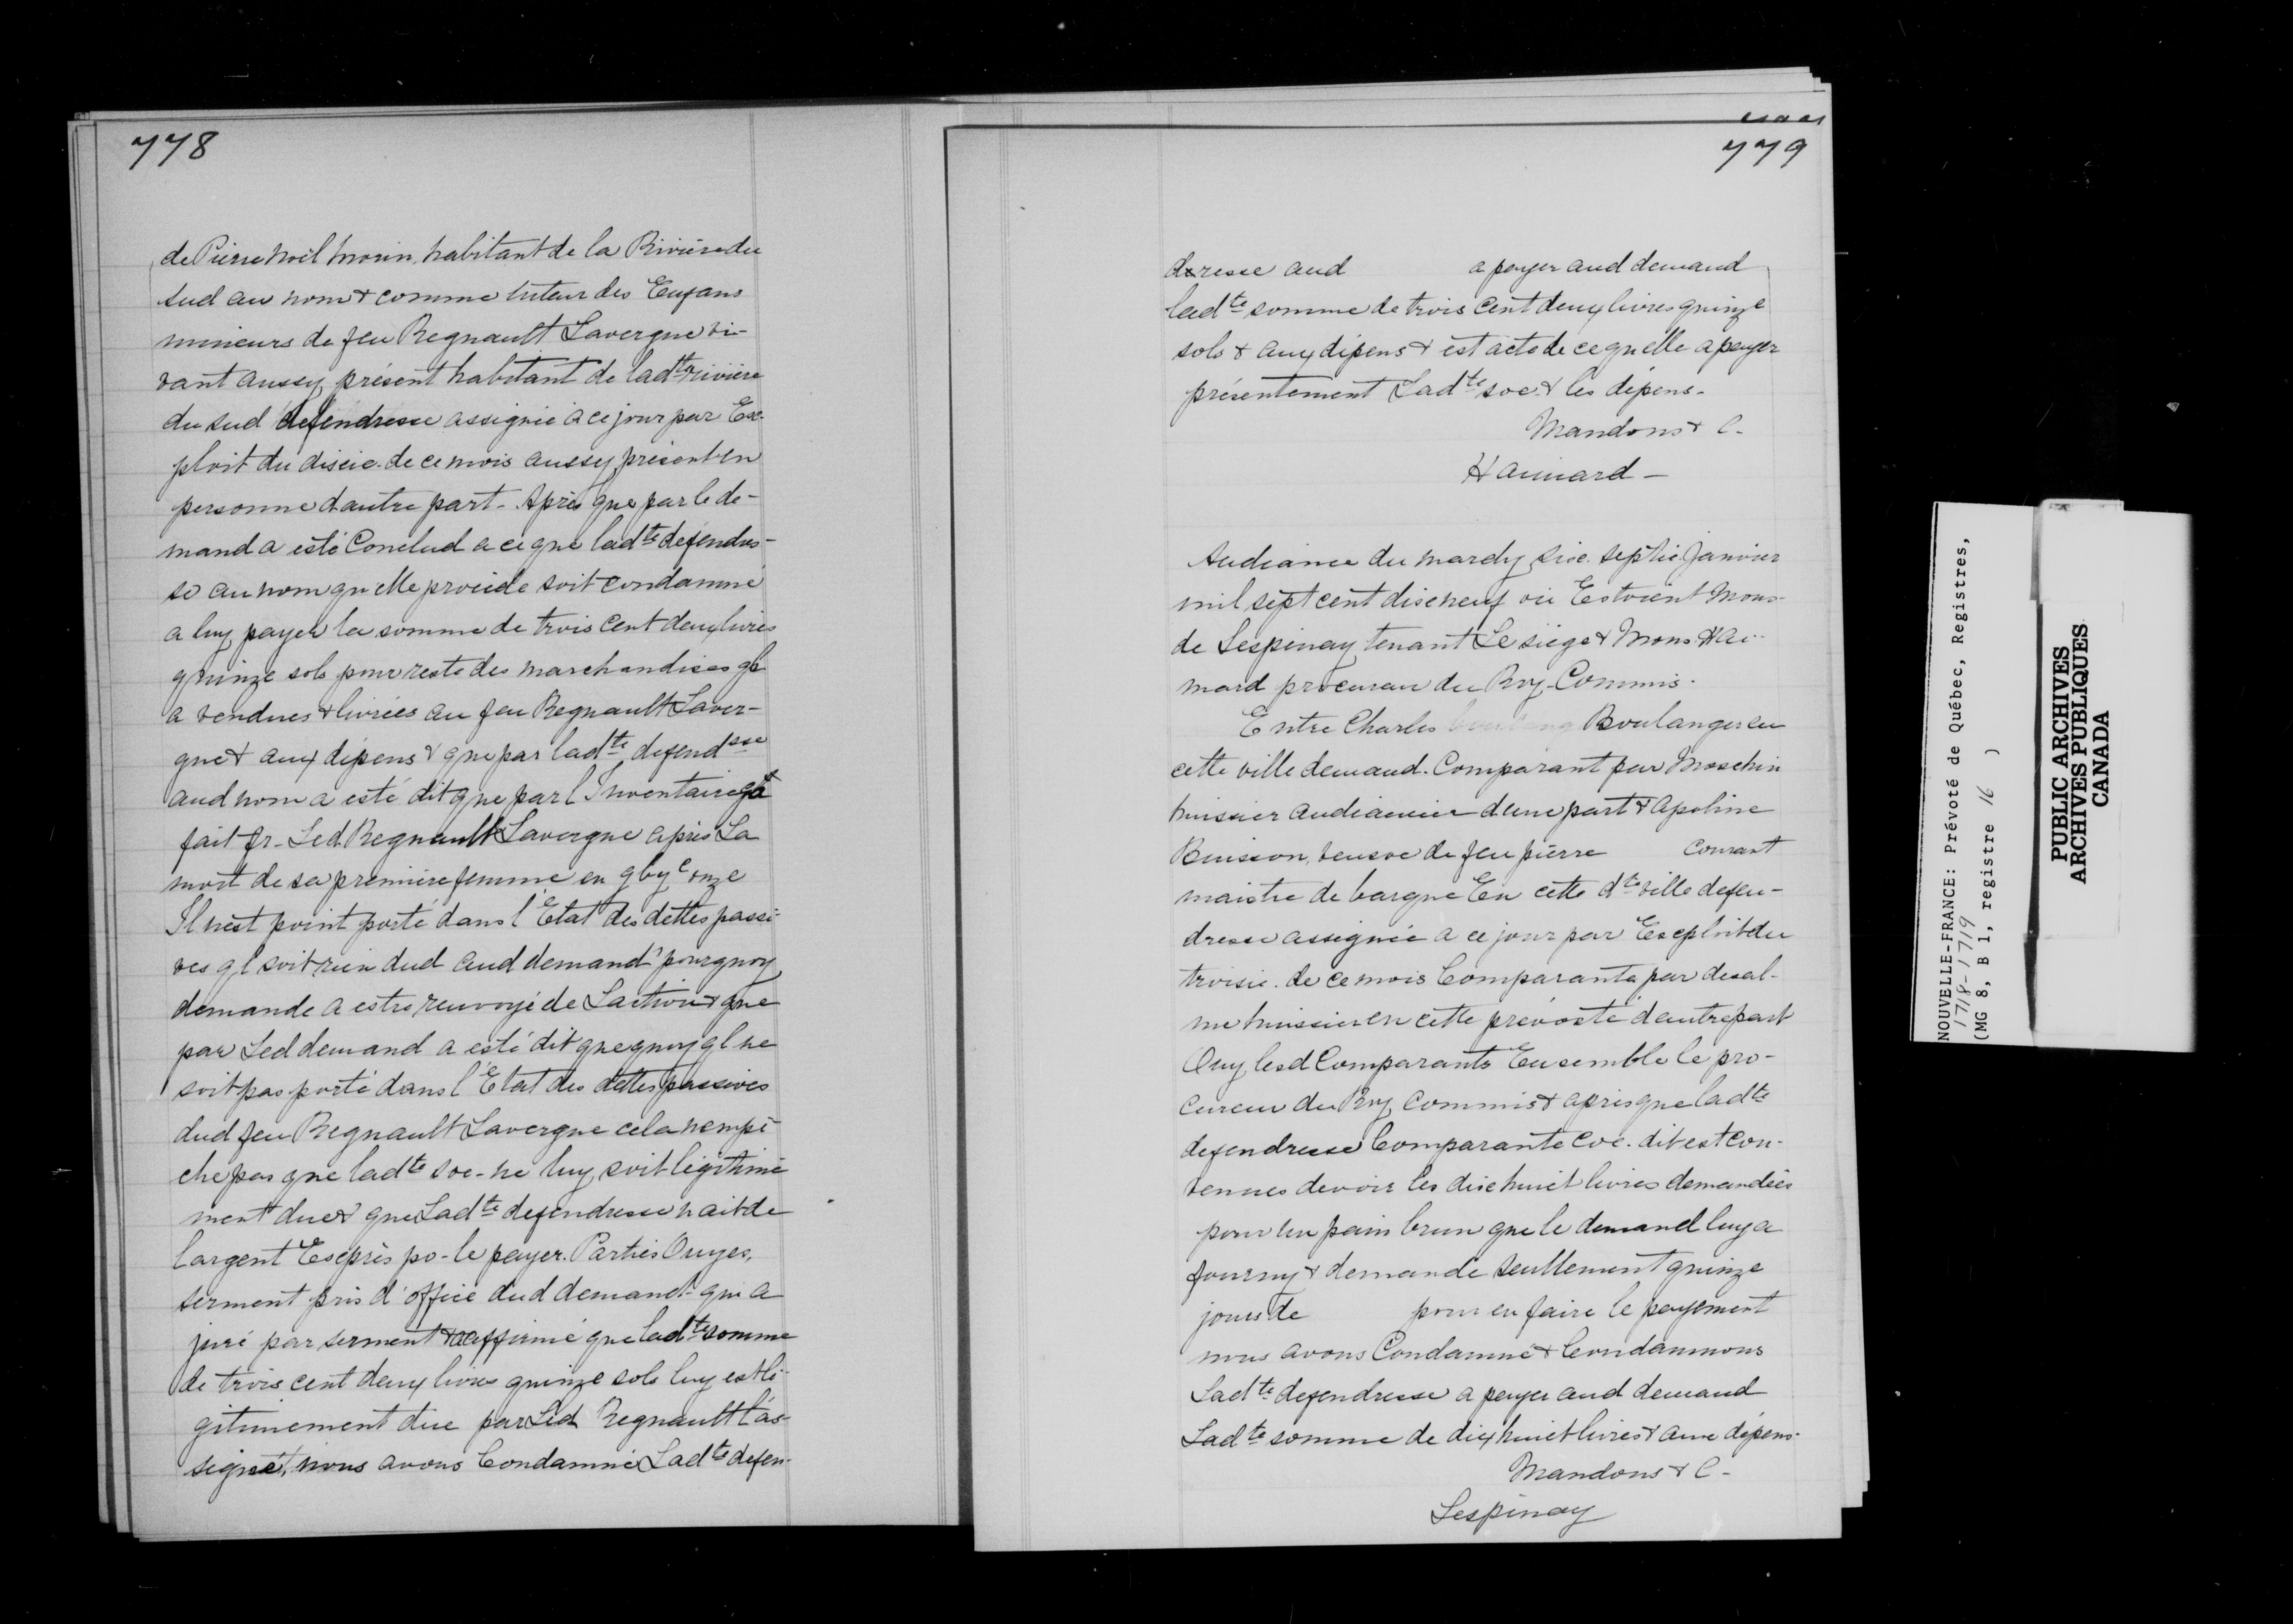 778
de Pierre Noël Morin, habitant de la Rivière du
sud au nom & comme tuteur des Enfans
mineurs de feu Regnault Lavergne vi-
vant aussy présent habitant de ladte rivière
du sud defendresse assignée à ce jour par Ex-
ploit du disxie. de ce mois aussy présent en
personne d'autre part - Après que par le de-
mand a esté Conclud a ce que ladte défendres-
se au nom qu'elle procède soit condamné
a luy payer la somme de trois cent deux livres
quinze sols pour reste des marchandises ql
a vendues & livrées au feu Regnault Laver-
gne & aux dépens & que par ladte defendsse
aud nom a esté dit que par l'Inventaire ql a
fait fr. Led Regnault Lavergne après La
mort de sa première femme en gbye onze
Il n'est point porté dans l'Etat des dettes passi-
ves ql soit rien dud aud demandr pourquoy
demande a estre renvoyé de Laction & que
par Led demand a esté dit que quoy ql ne
soit pas porté dans l'Etat des dettes passives
dud feu Regnault Lavergne cela nempê-
che pas que ladte soe - ne luy soit légitime
ment due & que Ladte defendresse n'ait de
largent Exprès po - le payer. Parties Ouyes,
serment pris d'office dud demand - qui a
juré par serment & affirmé que ladte somme
de trois cent deux livres quinze sols luy est lé-
gitimement due par Led Regnault L'as-
signé, nous avons Condamné Ladte defen-
779
dresse aud a payer aud demand
ladte somme de trois cent deux livres quinze
sols & aux dépens & est acte de ce qu'elle a payer
présentement Ladte soe & les dépens -
Mandons & C -
Haimard -
Audiance du mardy dixe. septie Janvier
mil sept cent dixneuf où Estoient Mons-
de Lespinay tenant Le siège & Mons. Hai-
mard procureur du Roy - Commis.
Entre Charles Boulanger en
cette ville demand. Comparant par Moschin
huissier audiancier dune part & Apoline
Buisson, veusve de feu pierre Courant
maistre de barque En cette dte ville defen-
dresse assignée a ce jour par Exploit du
troisie. de ce mois Comparante par desal-
me huissier en cette prévosté d'autre part
Ouy lesd Comparants Ensemble le pro-
cureur du Roy commis & après que ladte
defendresse Comparante Coe. dit est con-
venues devoir les dixhuict livres demandées
pour un pain brun que le demand luy a
fourny & demande seullement quinze
jours de pour en faire le payement
nous avons Condamné & Condamnons
Ladte defendresse a payer aud demand
Ladte somme de dix huict livres & aux dépens -
Mandons & C -
Lespinay
NOUVELLE-FRANCE: Prévoté de Québec, Registres,
1718-1719
(MG 8, B 1, registre 16 )
PUBLIC ARCHIVES
ARCHIVES PUBLIQUES
CANADA